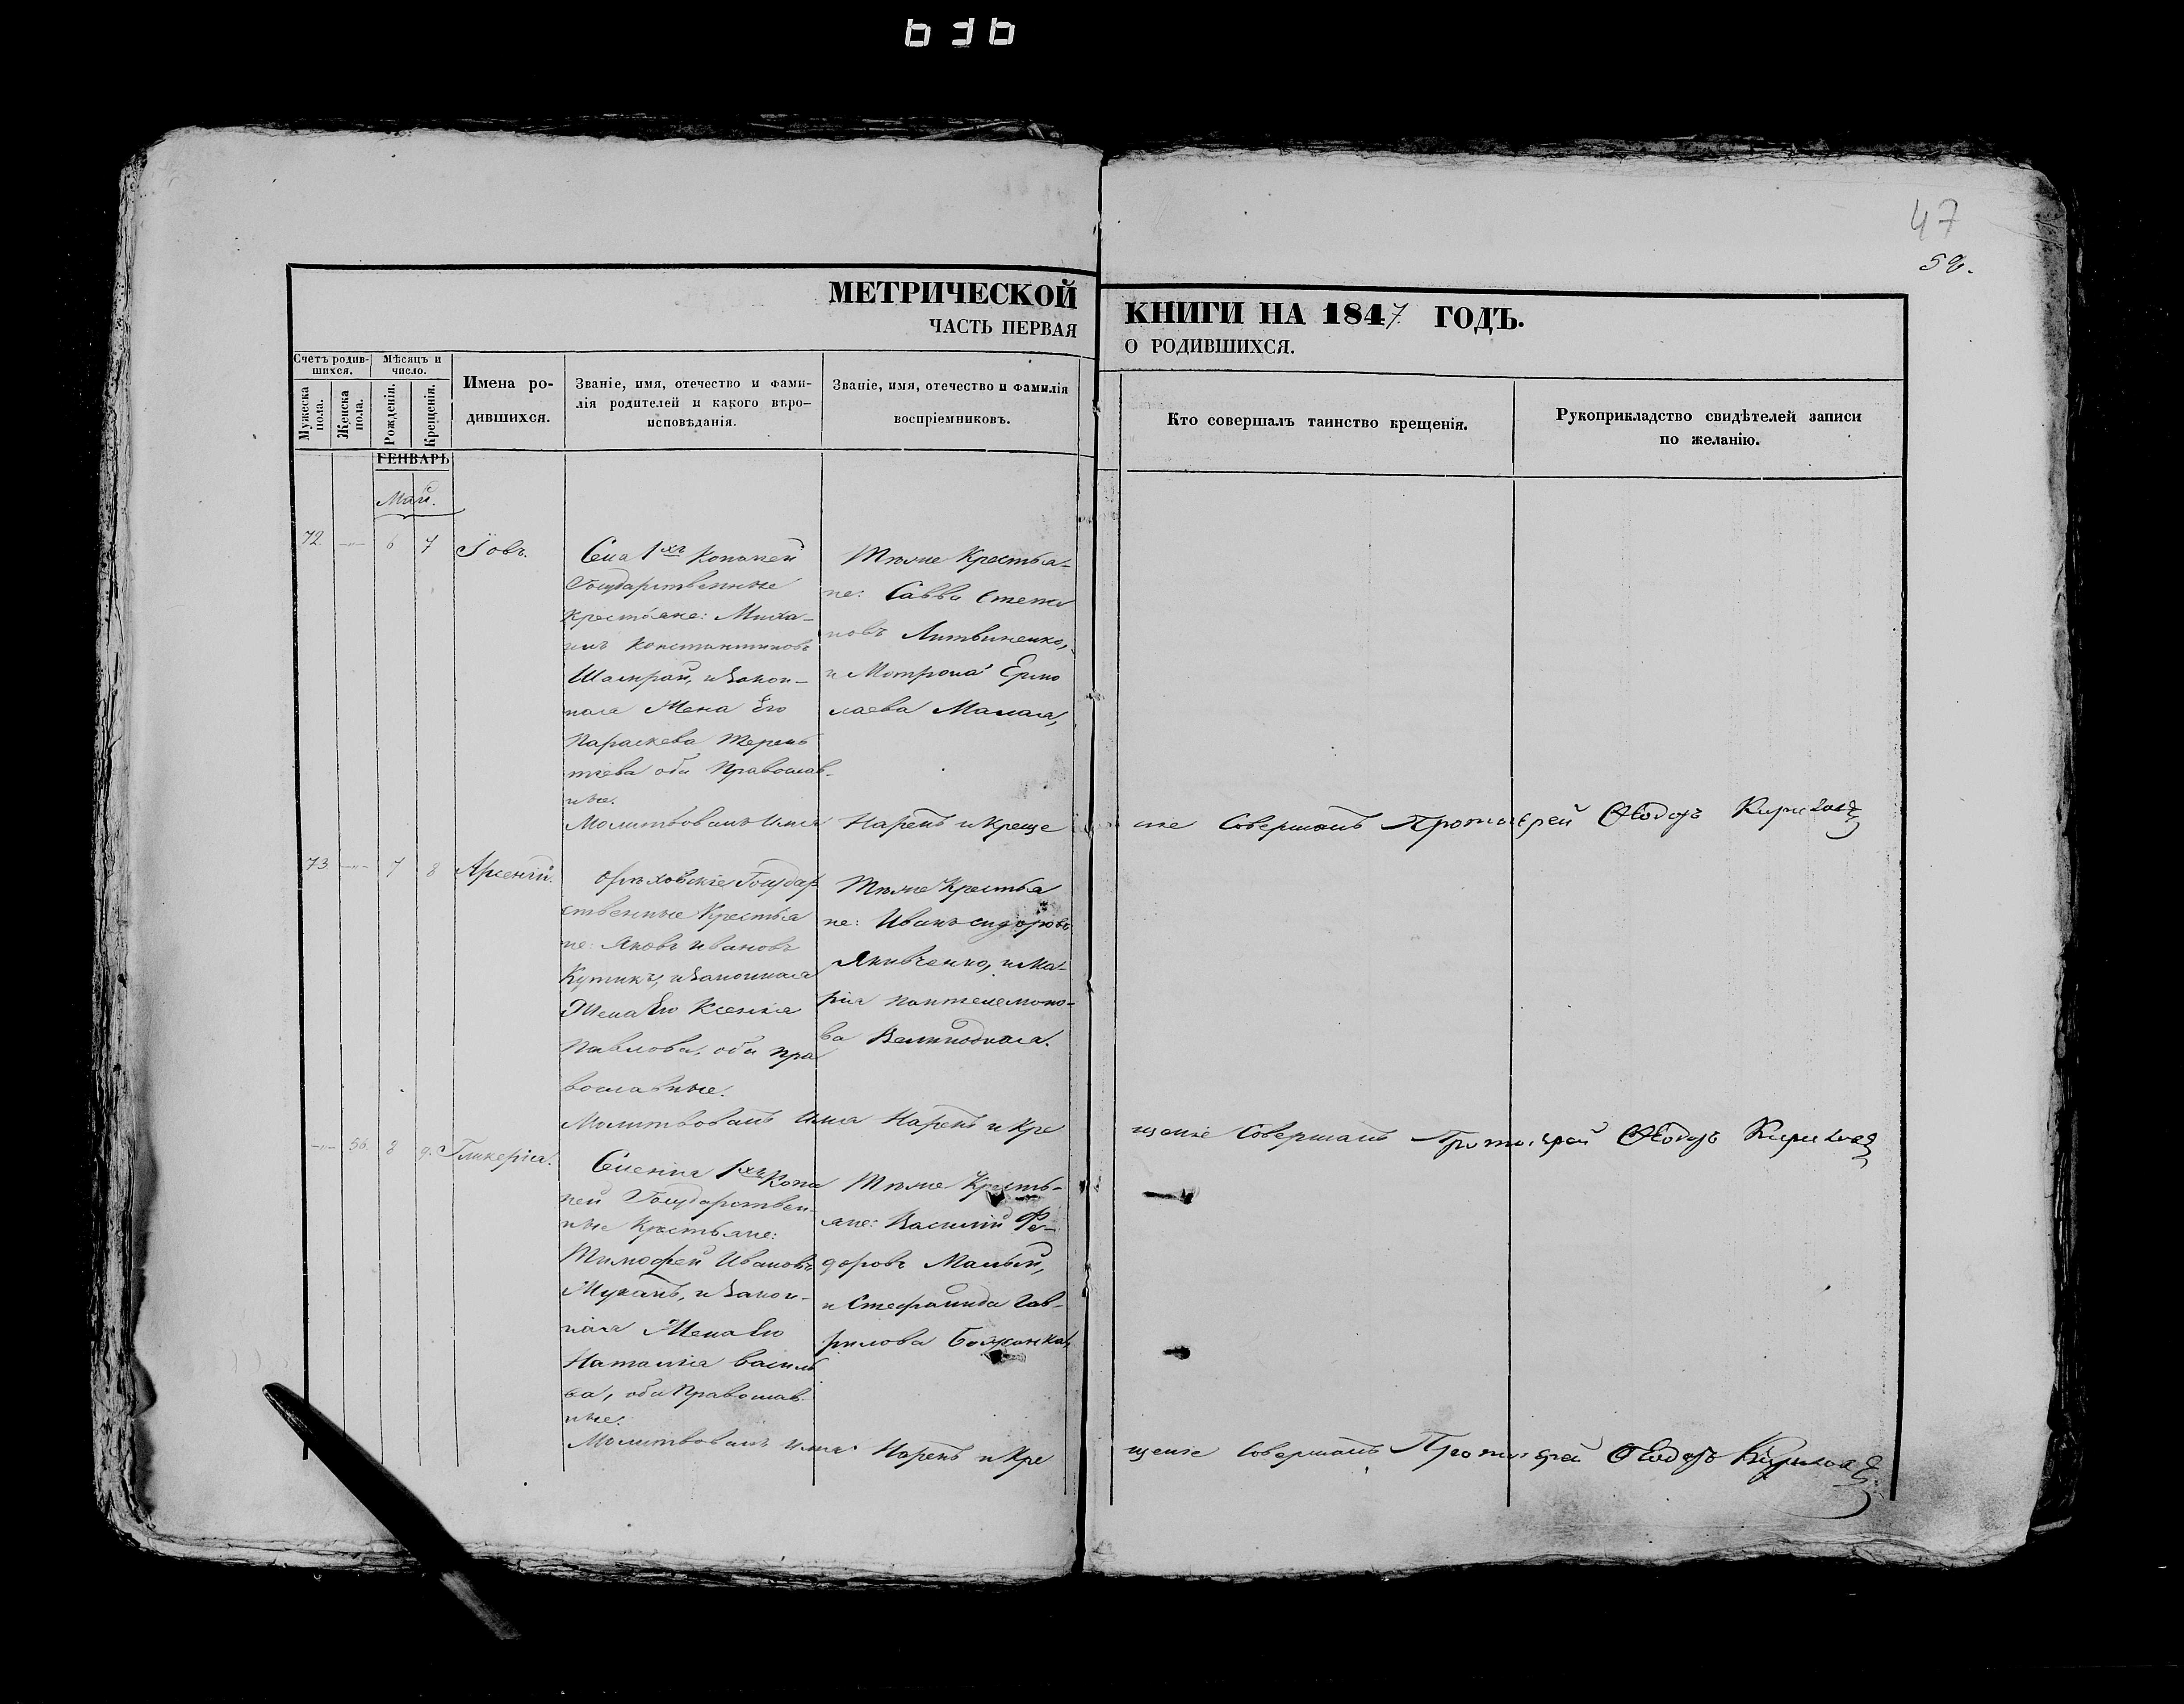 636
47
59.
МЕТРИЧЕСКОЙ
КНИГИ НА 1847 ГОДЪ.
ЧАСТЬ ПЕРВАЯ
О РОДИВШИХСЯ.
Счетъ родив-
шихся.
Мужеска пола.
Женска пола.
Мѣсяцъ и число.
Рожденія.
Крещенія.
Имена ро-
дившихся.
Званіе, имя, отечество и фами-
лія родителей и какого вѣро-
исповѣданія.
Званіе, имя, отечество и фамилія
воспріемниковъ.
Кто совершалъ таинство крещенія.
Рукоприкладство свидѣтелей записи
по желанію.
ГЕНВАРЬ
Май.
72. —„— 6 7 Іовъ.
Села 1хъ Копаней
Государственные
Крестьяне: Миха-
илъ Константиновъ
Шамрай, и Закон-
ная Жена Его
Параскева Терень
тіева оба Православ-
ные.
Тѣже Крестья-
не: Савва Степа
новъ Литвиненко,
и Мотрона Ермо
лаева Малая,
Молитвовалъ Имя Нарекъ и Креще
ніе Совершалъ Протоіерей Ѳеодоръ Кириловъ
73. —„— 7 8 Арсеній.
Орѣховскіе Государ
ственные Крестья
не: Яковъ Ивановъ
Кутикъ, и Законная
Жена Его Ксенія
Павлова, оба пра
вославные.
Тѣже Крестья
не: Иванъ Сидоровъ
Якивченко, и Ма-
рія Пантелемоно-
ва Великодная.
Молитвовалъ Имя Нарекъ и Кре
щеніе Совершалъ Протоіерей Ѳеодоръ Кириловъ
—„— 56. 8 9. Гликерія.
Селенія 1хъ Копа
ней Государствен-
ные Крестьяне:
Тимофей Ивановъ
Мукатъ, и Закон-
ная Жена Его
Наталія Василь
ева, оба Православ-
ные.
Тѣже Кресть-
яне: Василій Фе-
доровъ Малый,
и Стефанида Гав-
рилова Божанка,
Молитвовалъ Имя Нарекъ и Кре
щеніе Совершалъ Протоіерей Ѳеодоръ Кириловъ